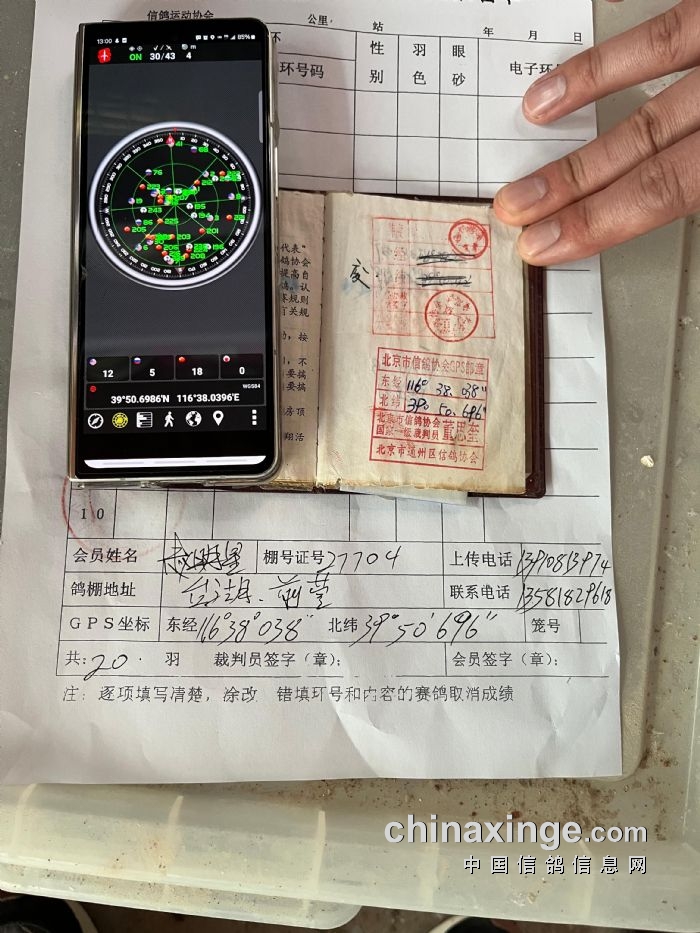 信鸽运动协会 公里, 站 年 月 日
环号码 性别 羽色 眼砂 电子环
13:00 85%
ON 30/43 4
12 5 18 0
WGS84
39°50.6986'N 116°38.0396'E
代表"
鸽协会
提高自
认
赛规则
有关规
按
不
要搞
要搞
房顶
翔活
变
北京市信鸽协会GPS部
东经 116° 38. 038"
北纬 39° 50. 696"
北京市信鸽协会
国家一级裁判员 董思奎
北京市通州区信鸽协会
10
会员姓名 棚号证号 27704 上传电话 13910813974
鸽棚地址 台湖. 前营 联系电话 13581829618
GPS坐标 东经 116°38°038" 北纬 39°50'696" 笼号
共: 20. 羽 裁判员签字（章）; 会员签字（章）:
注: 逐项填写清楚, 涂改 错填环号和内容的赛鸽取消成绩
chinaxinge.com
中国信鸽信息网